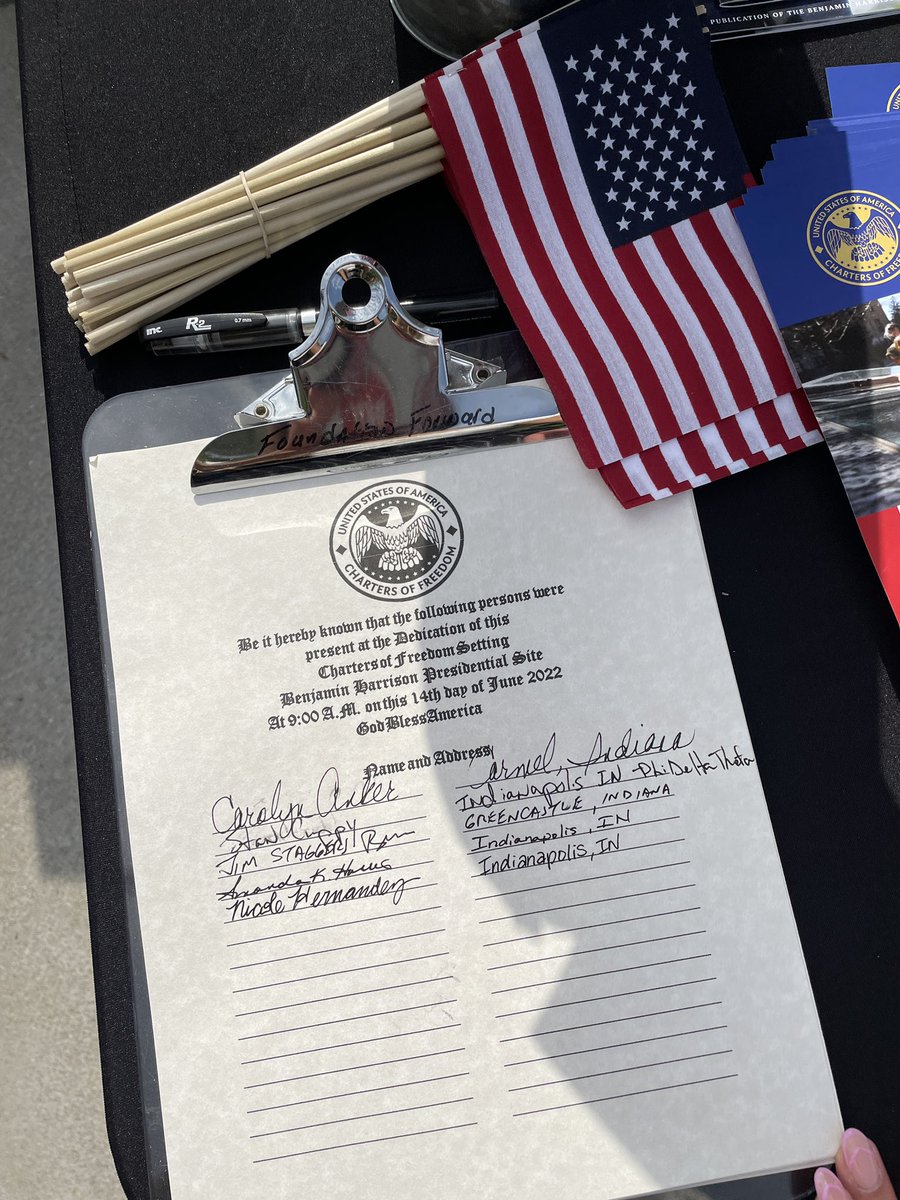 PUBLICATION OF THE BENJAMIN HARRIS
UNITED STATES OF AMERICA
CHARTERS OF FREEDOM
inc. R2 0.7 mm
Foundation Forward
UNITED STATES OF AMERICA
CHARTERS OF FREEDOM
Be it hereby known that the following persons were
present at the Dedication of this
Charters of Freedom Setting
Benjamin Harrison Presidential Site
At 9:00 A.M. on this 14th day of June 2022
God Bless America
Name and Address
Carolyn Anker Carmel, Indiana
Stan Cuppy Indianapolis IN - Phi Delta Theta
JIM STAGGERS GREENCASTLE, INDIANA
Amanda K Indianapolis, IN
Nicole Hernandez Indianapolis, IN